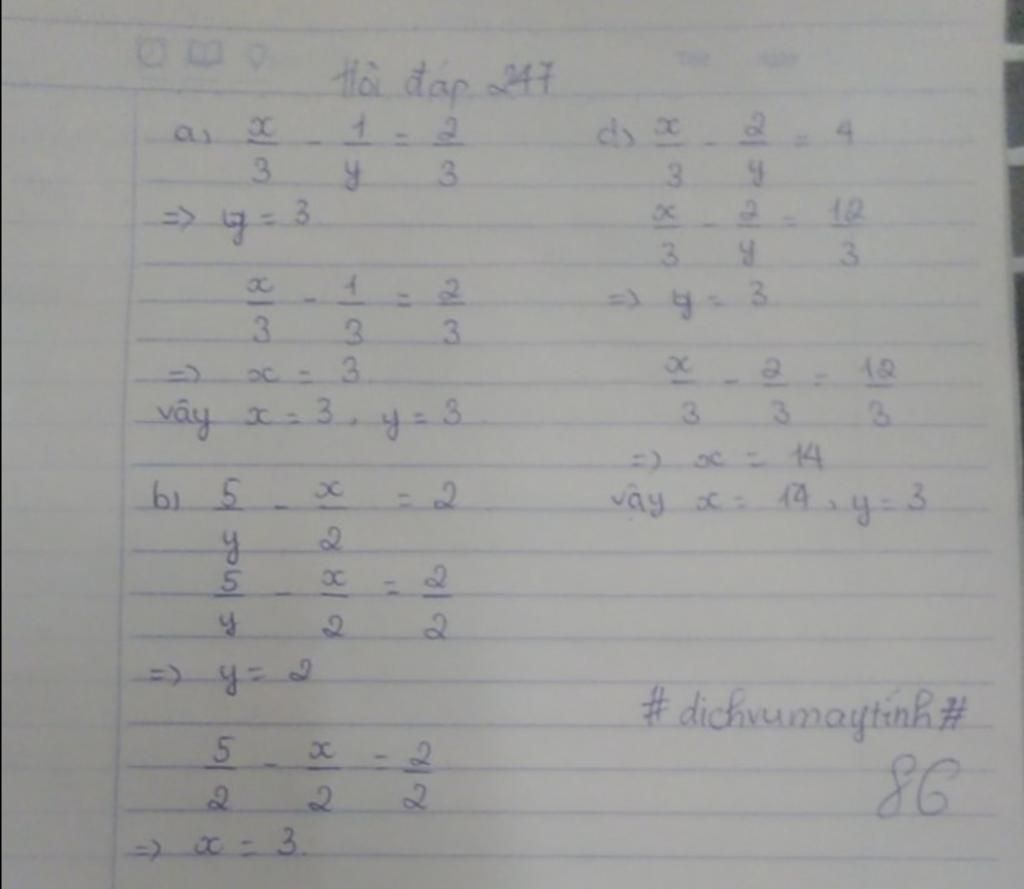 Hỏi đáp 247
a) x/3 - 1/y = 2/3
=> y = 3
x/3 - 1/3 = 2/3
=> x = 3
vậy x = 3, y = 3
b) 5/y - x/2 = 2
5/y - x/2 = 2/2
=> y = 2
5/2 - x/2 = 2/2
=> x = 3.
d) x/3 - 2/y = 4
x/3 - 2/y = 12/3
=> y = 3
x/3 - 2/3 = 12/3
=> x = 14
vậy x = 14, y = 3
#dichvumaytinh#
86